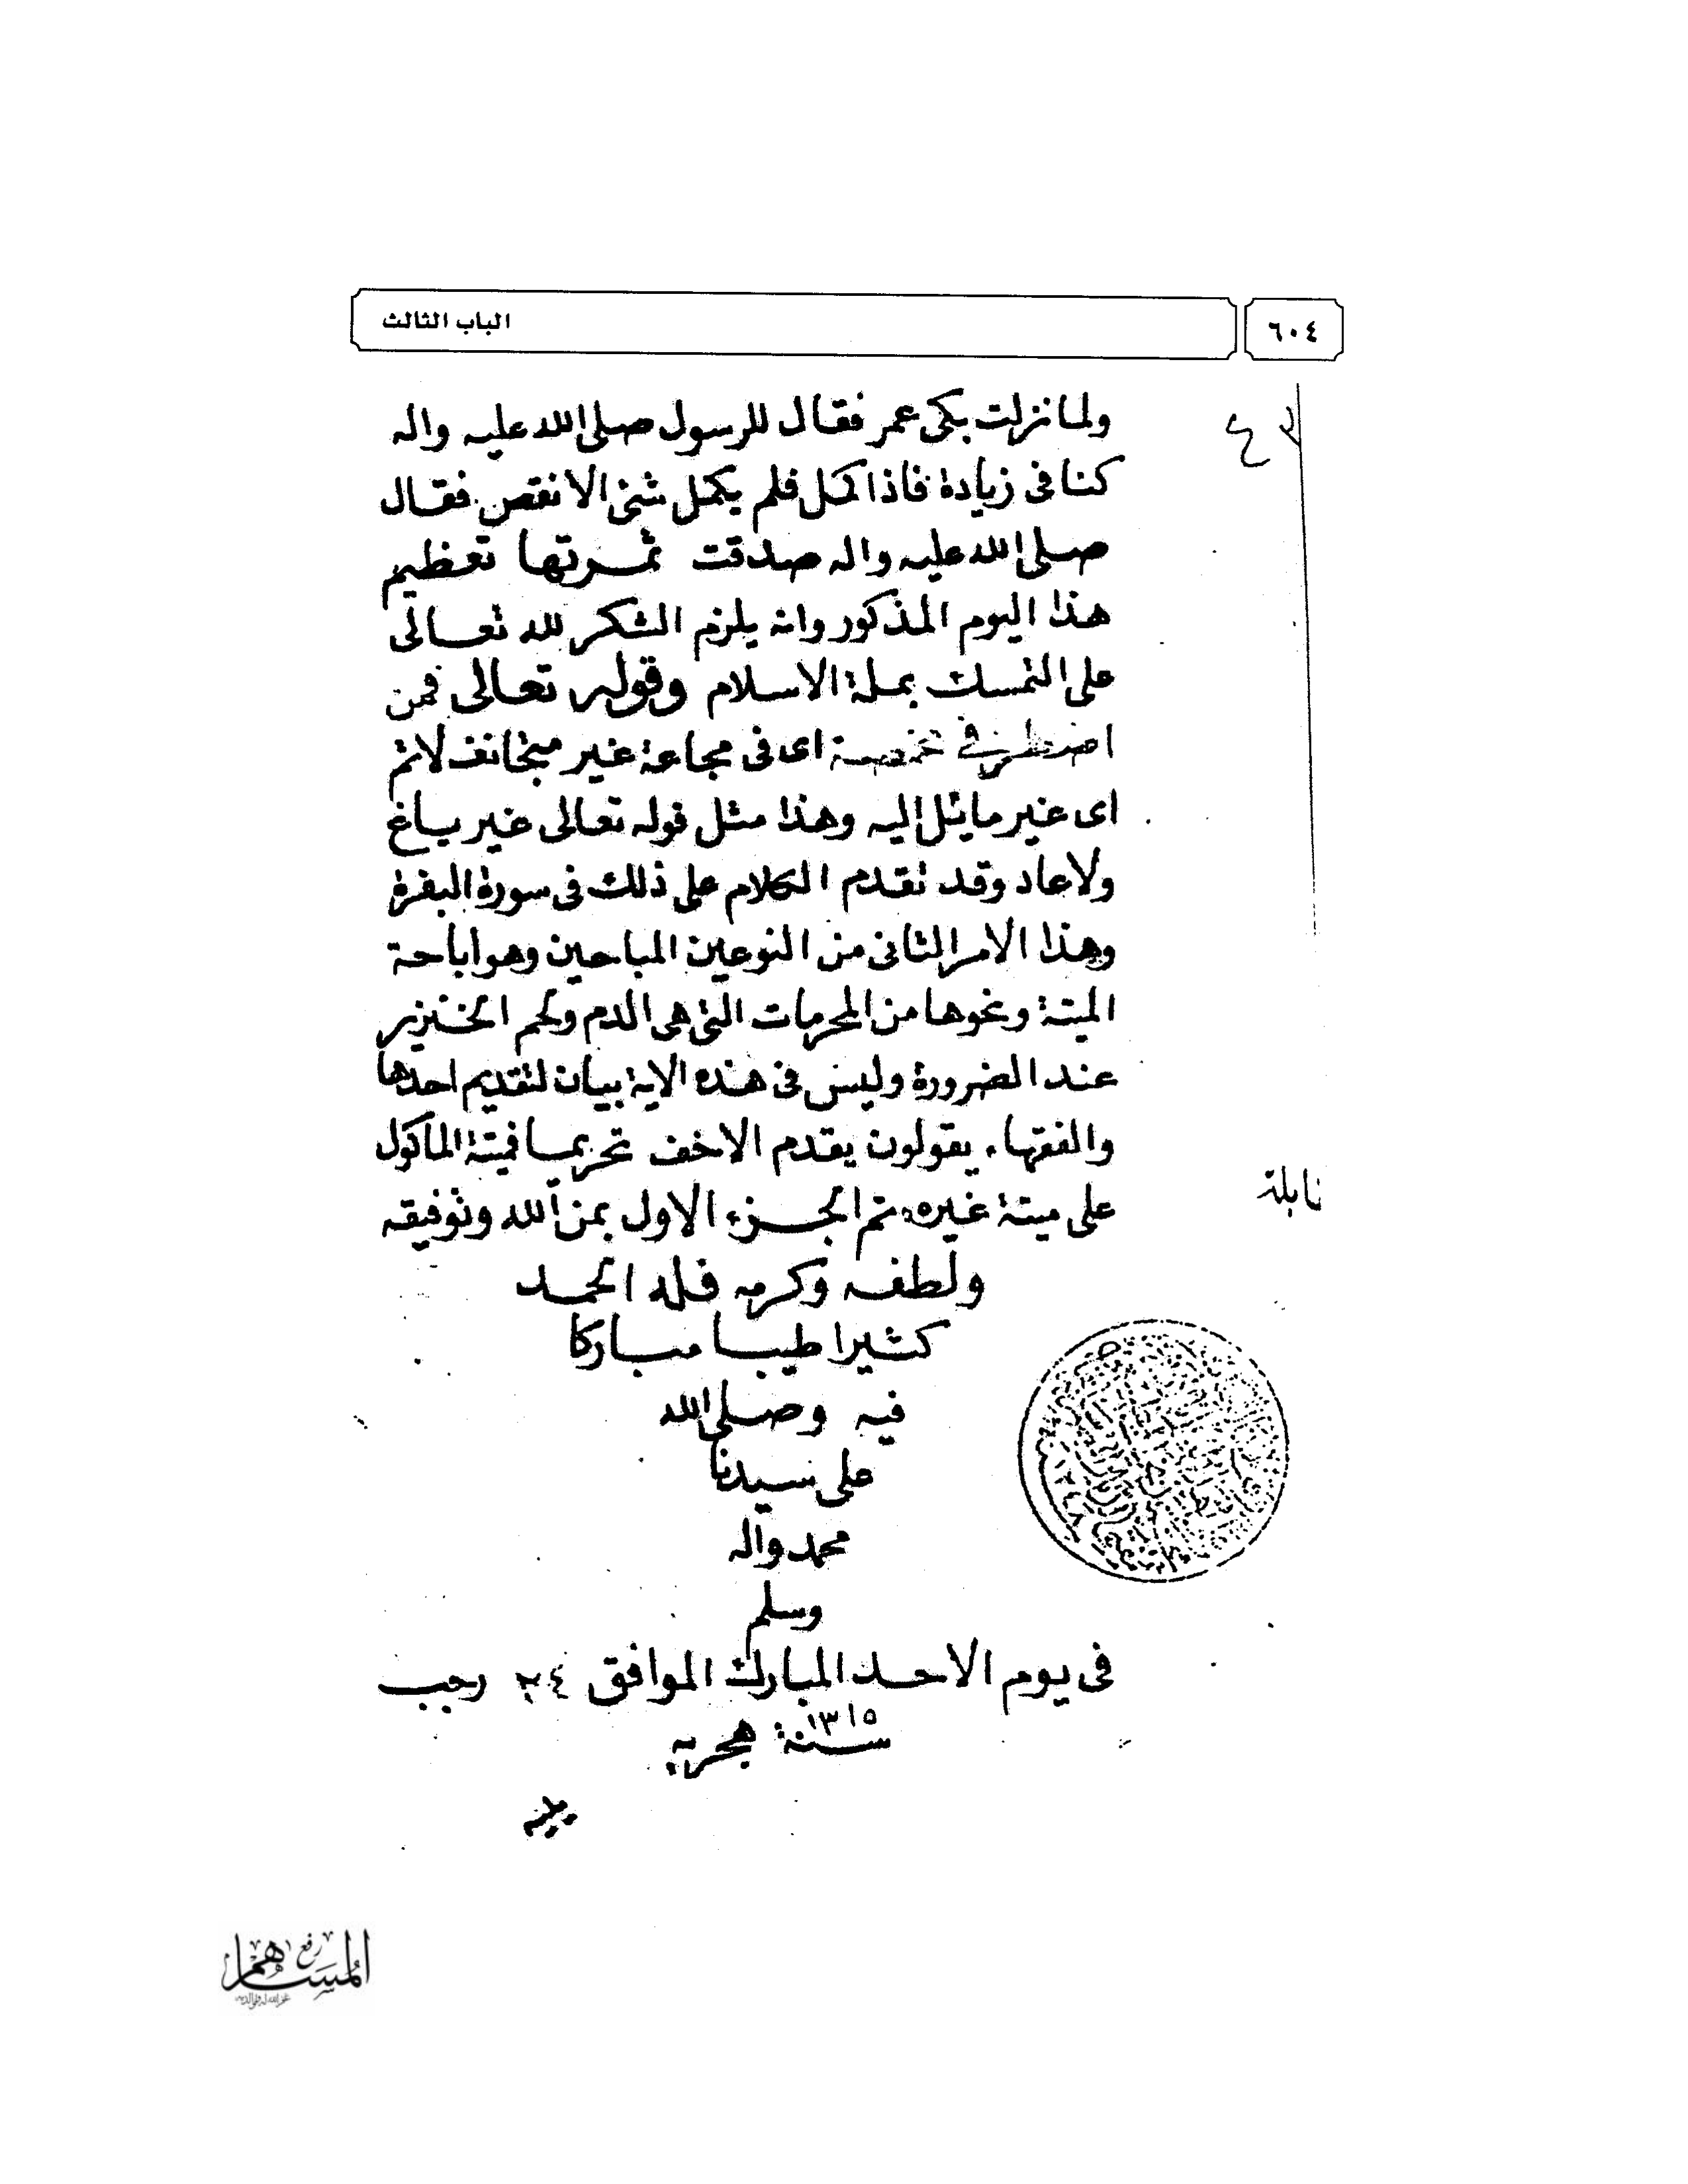 ٦٠٤
الباب الثالث
ولما نزلت بكى عمر فقال للرسول صلى الله عليه واله
كنا فى زيادة فاذا كمل فلم يكمل شئ الا نقص فقال
صلى الله عليه واله صدقت ثمرتها تعظيم
هذا اليوم المذكور وانه يلزم الشكر لله تعالى
على التمسك بملة الاسلام وقوله تعالى فمن
اضطر فى مخمصة اى فى مجاعة غير متجانف لاثم
اى غير مائل اليه وهذا مثل قوله تعالى غير باغ
ولا عاد وقد تقدم الكلام على ذلك فى سورة البقرة
وهذا الامر الثانى من النوعين المباحين وهو اباحة
الميتة ونحوها من المحرمات التى هى الدم ولحم الخنزير
عند الضرورة وليس فى هذه الاية بيان لتقديم احدها
والفقهاء يقولون يقدم الاخف تحريما فميتة الماكول
على ميتة غيره تم الجزء الاول بمن الله وتوفيقه
ولطفه وكرمه فله الحمد
كثيرا طيبا مباركا
فيه وصلى الله
على سيدنا
محمد واله
وسلم
فى يوم الاحد المبارك الموافق ٢٤ رجب
سنة ١٣١٥ هجريه
رفع
المساهم